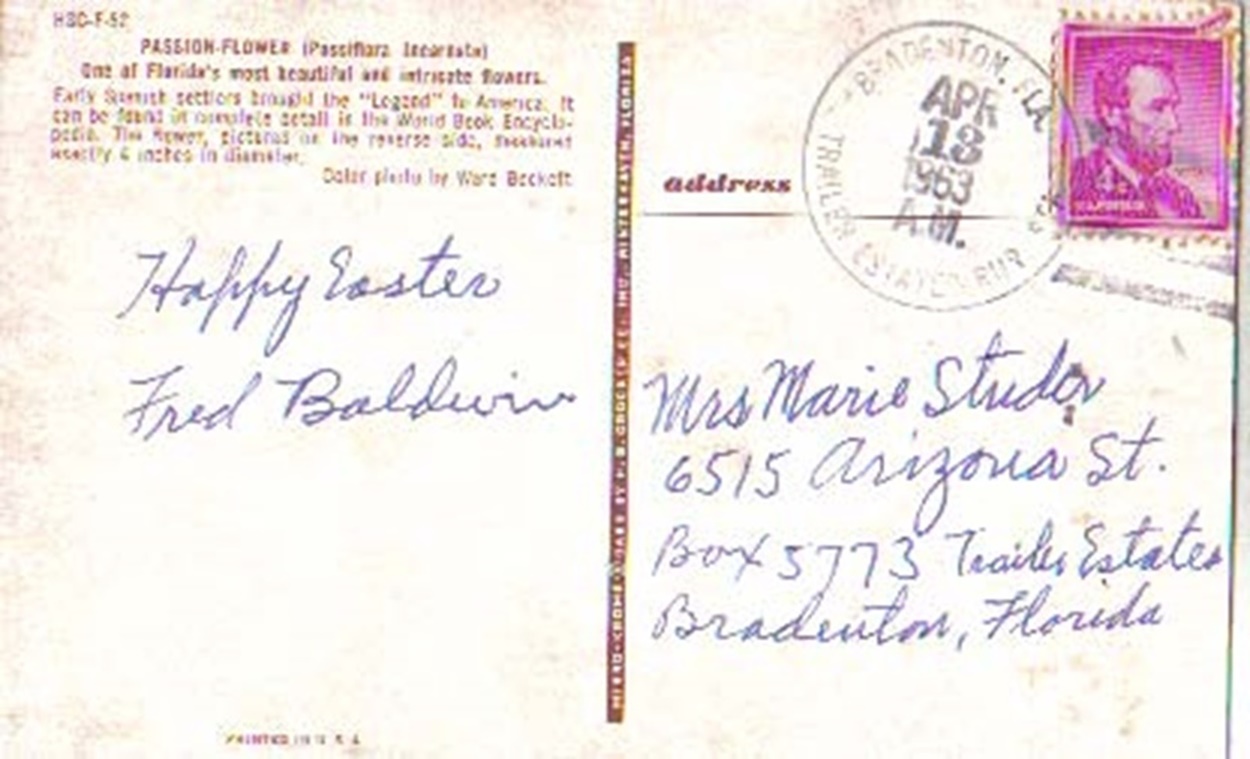 HSC-F-52
PASSION-FLOWER (Passiflora Incarnata)
One of Florida's most beautiful and intricate flowers.
Early Spanish settlers brought the "Legend" to America. It
can be found in complete detail in the World Book Encyclo-
pedia. The flower, pictured on the reverse side, measured
exactly 4 inches in diameter.
Color photo by Ward Beckett
Happy Easter
Fred Baldwin
PRINTED IN U. S. A.
address
BRADENTON, FLA.
APR
13
1963
A.M.
TRAILER ESTATES RUR
4¢
U.S. POSTAGE
Mrs Marie Studer
6515 Arizona St.
Box 5773 Trailer Estates
Bradenton, Florida